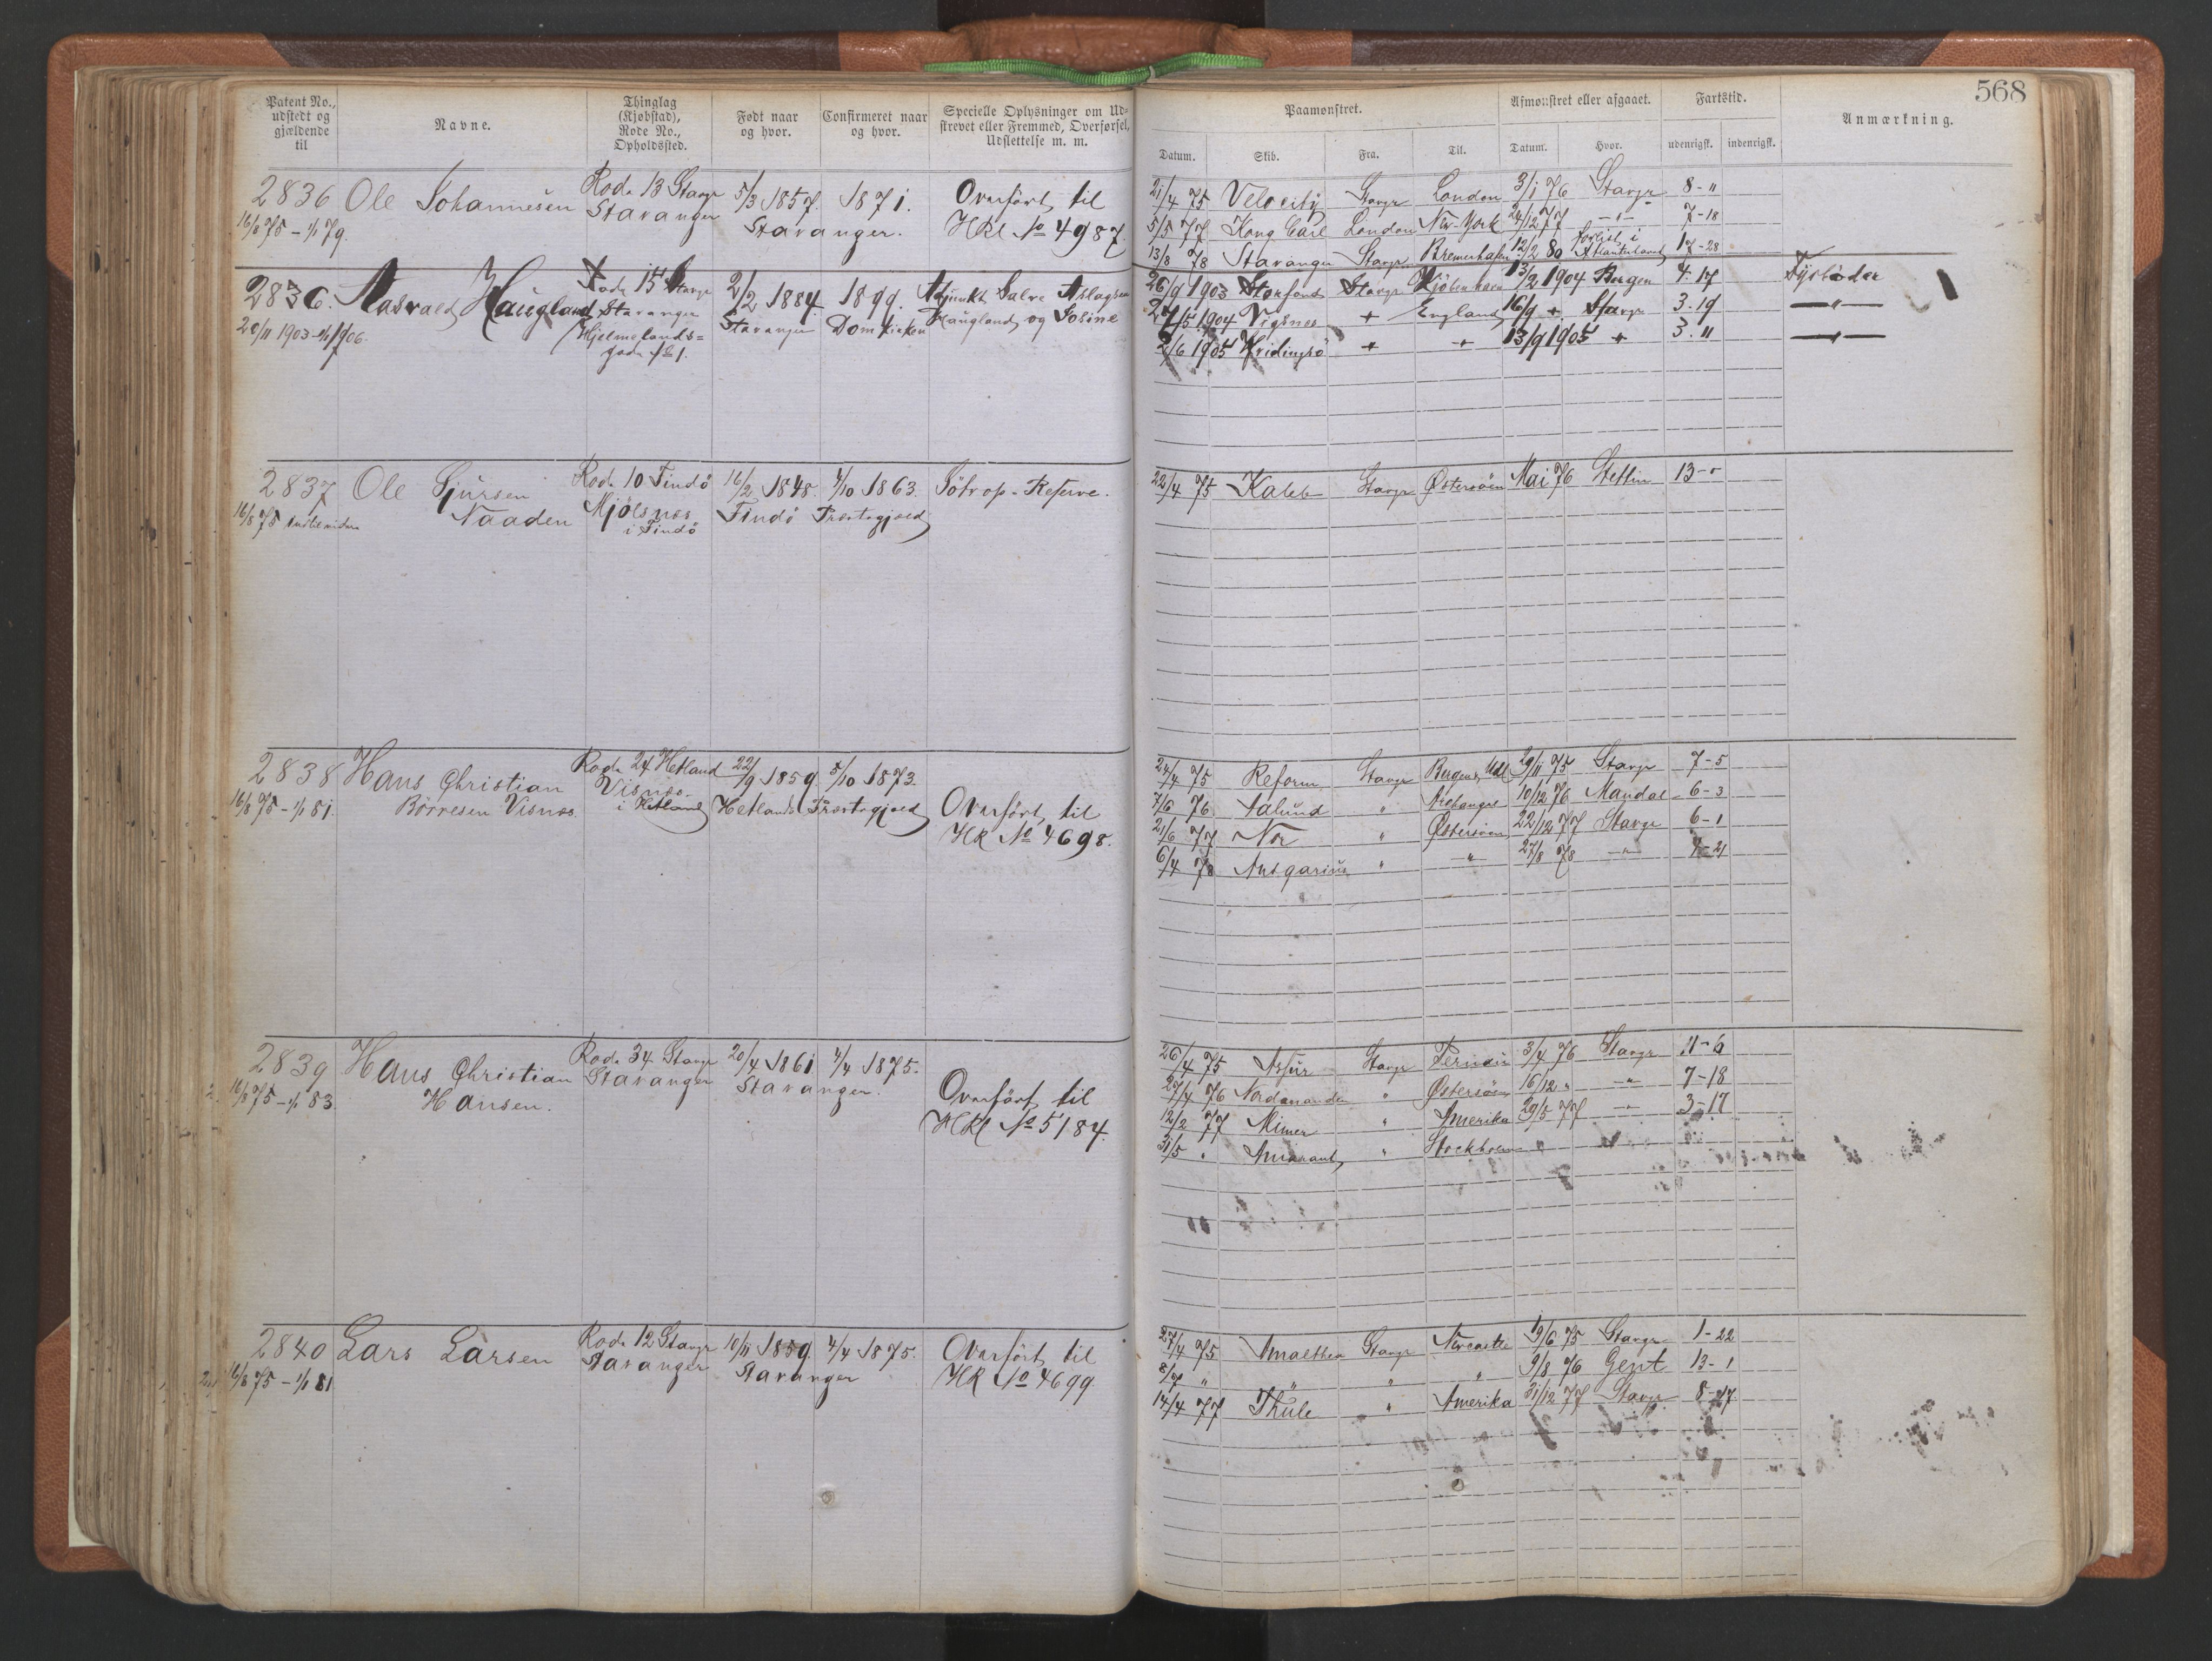 568
Patent No., udstedt og gjældende til
Navne.
Thinglag (Kjøbstad), Rode No., Opholdssted.
Født naar og hvor.
Confirmeret naar og hvor.
Specielle Oplysninger om Udstrevet eller Fremmed, Overførsel, Udslettelse m. m.
Paamønstret.
Afmønstret eller afgaaet.
Fartstid.
Anmærkning.
Datum. Skib. Fra. Til. Datum. Hvor. udenrigsk. indenrigsk.
2836 Ole Johannesen Rode 13 Stavgr 5/3 1857. 1871. Overført til
16/8 75 - 1/1 79. Stavanger Stavanger. HRl No 4987.
21/4 75 Velocity Stavgr London 3/1 76 Stavgr 8-"
5/5 77 Kong Carl London New-York 24/12 77 -"- 7-18
13/8 78 Stavanger Stavgr Bremerhafen 12/2 80 forlist i Atlanterhavet 17-28
2836. Aasvald Haugland Rode 15 Stavgr 2/2 1884. 1899. Adjunkt Salve Aslagsen
20/11 1903-1/1 1906. Stavanger Stavanger Domkirken Haugland og Josine
Hjelmelands=
gade
26/9 1903 Storfond Stavgr Kjøbenhavn 13/2 1904 Bergen 4. 17 Fyrbøder
27/5 1904 Vigsnes + England 16/9 + Stavgr 3. 19 -"-
2/6 1905 + + 13/9 1905 + 3. 11 -"-
2837 Ole Sjursen Rode 10 Findö 16/2 1848. 4/10 1863. Søtrop-Reserve.
16/8 75 Naaden Mjølsnes Findö Præstegjæld
i Findö
22/4 75 Kaleb Stavgr Østersøen Mai 76 Stettin 13-"
2838 Hans Christian Rode 24 Hetland 22/9 1859. 5/10 1873.
16/8 75 - 1/1 81. Børresen Visnæs. Visnæs Hetlands Præstegjæld Overført til
i Hetland HR No 4698.
24/4 75 Reform Stavgr Bergen, Udl 29/11 75 Stavgr 7-5
7/6 76 " Archangel 10/12 76 Mandal 6-3
21/6 77 Nor " Østersøen 22/12 77 Stavgr 6-1
6/4 78 Ansgarius " -"- 27/8 78 -"- 4-21
2839 Hans Christian Rode 34 Stavgr 20/4 1861 4/4 1875.
16/8 75 - 1/1 83. Hansen. Stavanger Stavanger. Overført til
HRl No 5184.
26/4 75 Asfur Stavgr Pernau 3/4 76 Stavgr 11-6
27/4 76 " Østersøen 16/12 " -"- 7-18
12/2 77 Mimer " Amerika 29/5 77 -"- 3-17
31/5 " Amarant " Stockholm
2840 Lars Larsen Rode 12 Stavgr 10/11 1859. 4/4 1875. Overført til
16/8 75 - 1/1 81 Stavanger Stavanger HR No 4699.
27/4 75 Amalthea Stavgr Newcastle 19/6 75 Stavgr 1-22
8/7 " " " " 9/8 76 Gent 13-1
14/4 77 Thule " Amerika 31/12 77 Stavgr. 8-17